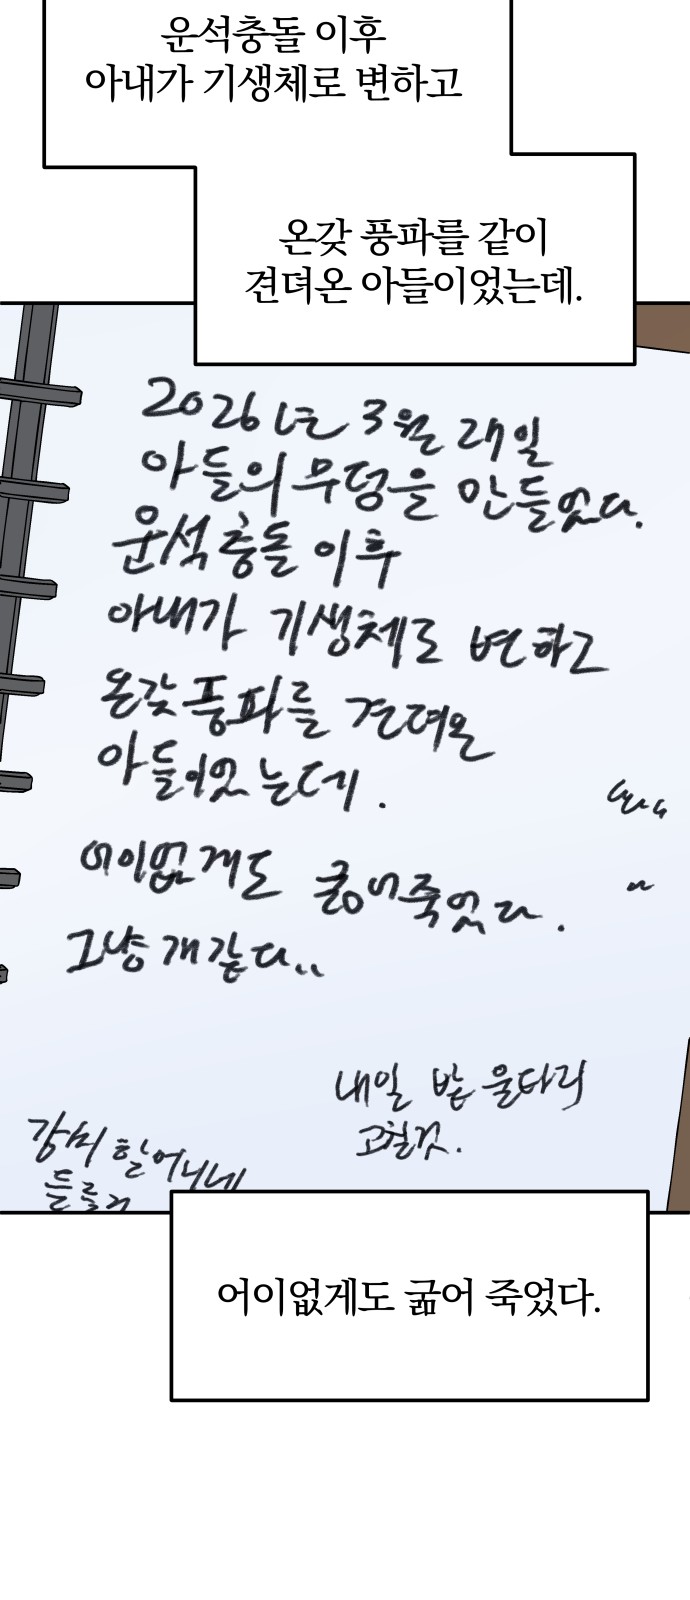 운석충돌 이후
아내가 기생체로 변하고
온갖 풍파를 같이
견뎌온 아들이었는데.
2026년 3월 래일
아들의 무덤을 만들었다.
운석충돌 이후
아내가 기생체로 변하고
온갖 풍파를 견뎌온
아들이었는데.
어이없게도 굶어죽었다.
그냥 개같다..
내일 밭 울타리
고칠것.
강씨 할머니네
들를거
어이없게도 굶어 죽었다.